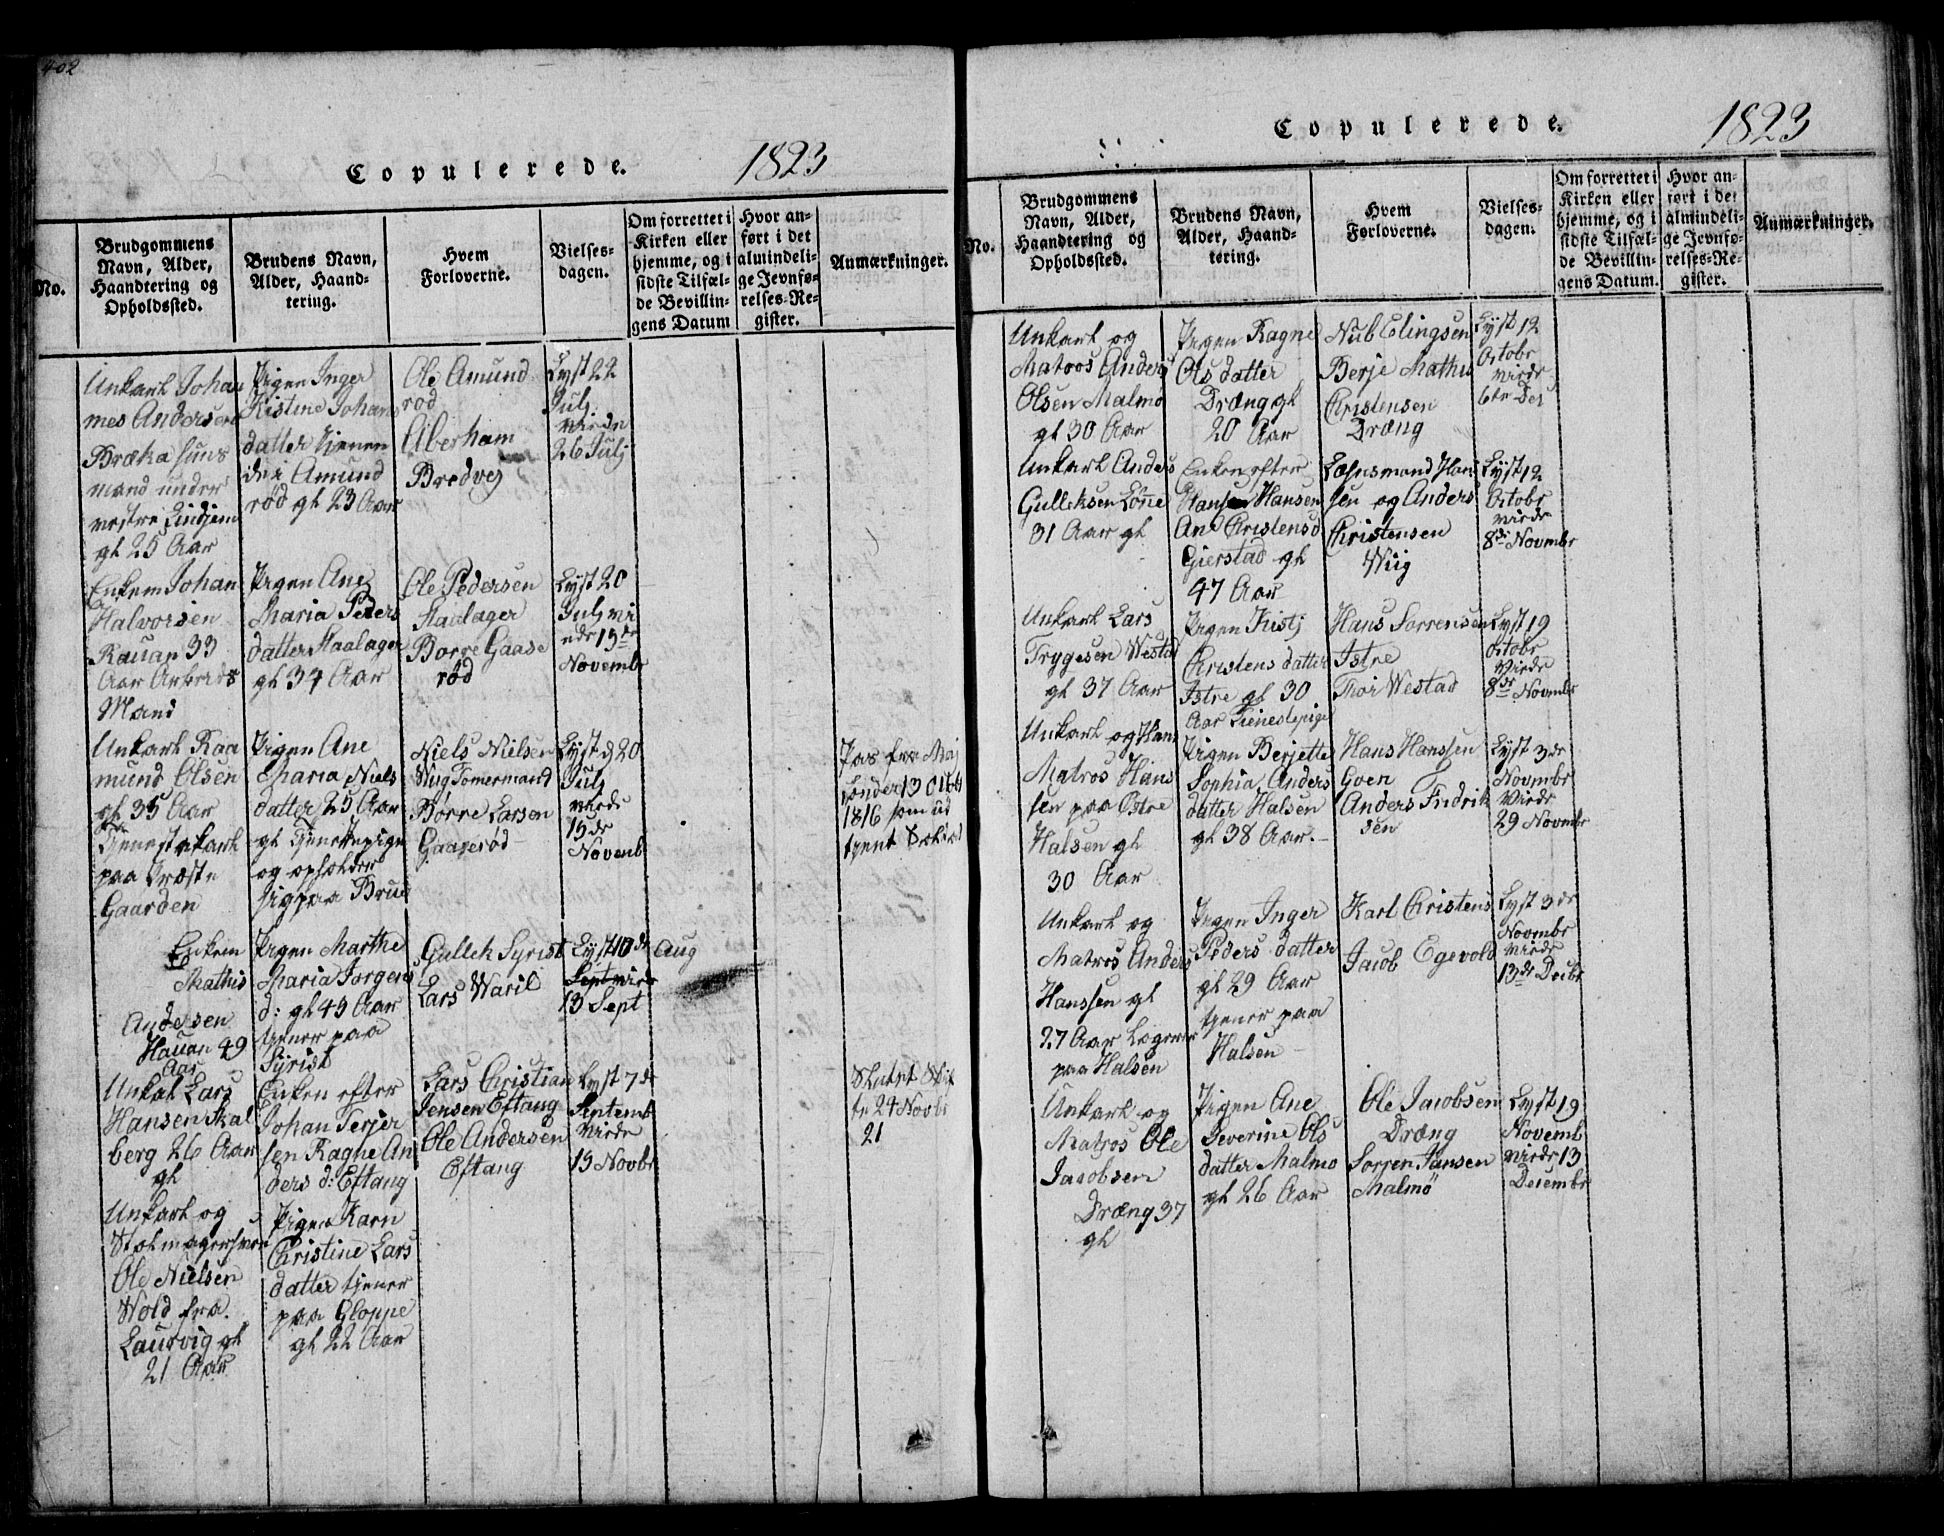 402
Copulerede. 1823
No.
Brudgommens
Navn, Alder,
Haandtering og
Opholdssted.
Brudens Navn,
Alder, Haand-
tering.
Hvem
Forloverne.
Vielses-
dagen.
Om forrettet i
Kirken eller
hjemme, og i
sidste Tilfæl-
de Bevillin-
gens Datum
Hvor an-
ført i det
almindeli-
ge Jevnfø-
relses-Re-
gister.
Anmærkninger.
Unkarl Johan
mes Andersen
Bræka huus
mand under
vestre Lindjem
gl 25 Aar
Pigen Inger
Kistine Johans
datter tjenen
de i Amund
rød gl 23 Aar
Ole Amund
rod
Aberham
Bredvej
Lyst 22
Julj
virde
26 Julj
Enkem Johan
Halvorsen
Rauan 33
Aar Arbeids
Mand
Pigen Ane
Maria Peders
datter Haalager
gl 34 Aar
Ole Pedersen
Haalager
Borre Gaase
rød
Lyst 20
Julj vi
ede 15de
Novembr
Unkarl Raa
mund Olsen
gl 35 Aar
Tjenestekarl
paa Præste
Gaarden
Pigen Ane
Maria Niels
datter 25 Aar
gl Tjenestepige
og opholder
sig paa Brue
Niels Nielsen
Wiig Tømermand
Børre Larsen
Gaaserød
Lyst d 20
Julj
virde
15de
Novemb
Pas fra Maj
13 Octb
1816 som ud
tjent
Enkem
Mathis
Andersen
Hauan 49
Aar
Pigen Marthe
Maria Jorgens
d: gl 43 Aar
tjener paa
Syrist
Gullek Syrist
Lars Waril
Lyst 10de Aug
Sept virde
13 Sept
Unkal Lars
Hansen Skal
berg 26 Aar
gl
Enken efter
Johan Terjer
sen Ragne An
ders d: Eftang
Lars Christian
Jensen Eftang
Ole Andersen
Eftang
Lyst 7de
Septemb
virde
15 Novbr
Skutet Skif
te 24 Novbr
21
Unkarl og
Ole Nielsen
Wold fra
Laurvig gl
21 Aar
Pigen Karn
Christine Lars
datter tjener
paa Gloppe
gl 22 Aar
Copulerede. 1823
No.
Brudgommens
Navn, Alder,
Haandtering og
Opholdssted.
Brudens Navn,
Alder, Haand-
tering.
Hvem
Forloverne.
Vielses-
dagen.
Om forrettet i
Kirken eller
hjemme, og i
sidste Tilfæl-
de Bevillin-
gens Datum.
Hvor an-
ført i det
almindeli-
ge Jevnfø-
relses-Re-
gister.
Anmærkninger.
Unkarl og
Matoos Anders
Olsen Malmø
gl 30 Aar
Pigen Ragne
Ols datter
Dræng gl
20 Aar
Nub Elingsen
Berje Mathis
Christensen
Dræng
Lyst 12
Octobr
virde
6te Des
Unkarl Anders
Gulleksen Lønne
31 Aar gl
Enken efter
Hans Hansen
Ane Christensd
Gierstad gl
47 Aar
Lehnsmand Han
sen og Anders
Christensen
Wiig
Lyst 12
Octobr
virde
8de Novembr
Unkarl Lars
Trygesen Westad
gl 37 Aar
Pigen Kistj
Christens datter
Istre gl 30
Aar Tienestepige
Hans Sorrensen
Istre
Thor Westad
Lyst 19
Octobr
Virde
8de Novembr
Unkarl og Han
Matros Han
sen paa Østre
Halsen gl
30 Aar
Pigen Berjette
Sophia Anders
datter Halsen
gl 38 Aar.
Hans Hanssen
Goen
Anders Fredrik
sen
Lyst 3de
Novembr
Virde
29 Novembr
Unkarl og
Matros Anders
Hanssen gl
27 Aar Logerer
paa Halsen
Pigen Inger
Peders datter
gl 29 Aar
tjener paa
Halsen
Karl Christens
Jacob Egevold
Lyst 3de
Novembr
virde
13de Decbr
Unkarl og
Matros Ole
Jacobsen
Dræng 37
gl
Pigen Ane
Severine Ols
datter Malmo
gl 26 Aar
Ole Jacobsen
Dræng
Sorren Jansen
Malmö
Lyst 19
Novemb
virde 13
Decembr